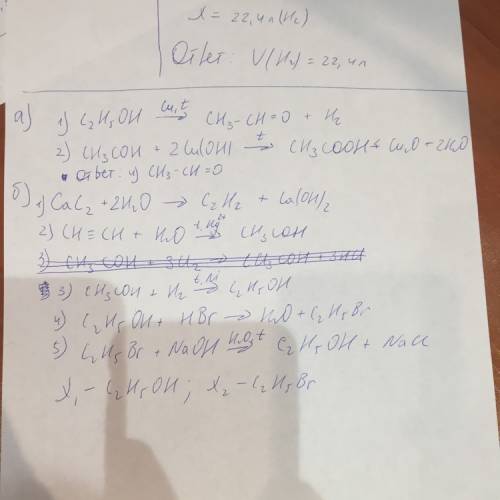 x = 22,4л (H₂)
Ответ: V(H₂) = 22,4л
а) 1) C₂H₅OH Cu,t → CH₃-CH=O + H₂
2) CH₃COH + 2Cu(OH) t → CH₃COOH + Cu₂O + 2H₂O
Ответ: 4) CH₃-CH=O
б) 1) CaC₂ + 2H₂O → C₂H₂ + Ca(OH)₂
2) CH≡CH + H₂O t,Hg²⁺ → CH₃COH
3) CH₃COH + 3H₂ → CH₃COH + 3HCl
3) CH₃COH + H₂ t,Ni → C₂H₅OH
4) C₂H₅OH + HBr → H₂O + C₂H₅Br
5) C₂H₅Br + NaOH H₂O,t → C₂H₅OH + NaCl
X₁ - C₂H₅OH; X₂ - C₂H₅Br